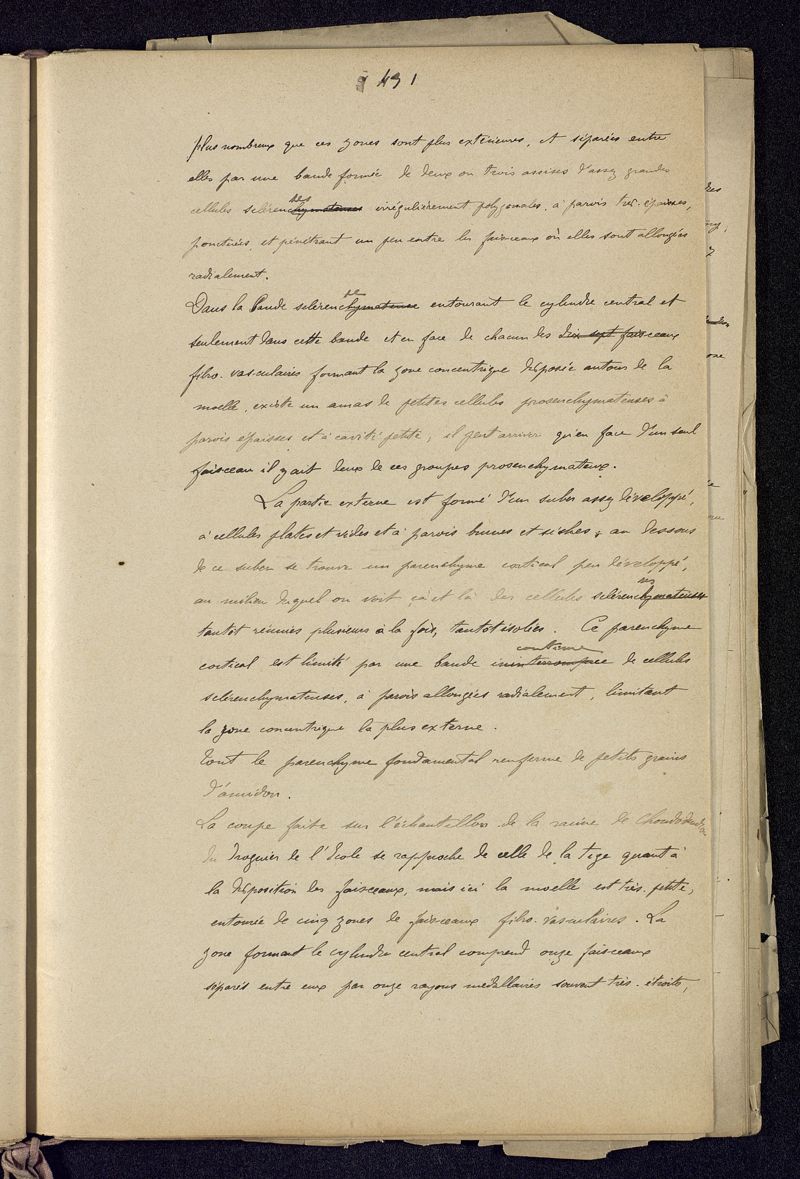 431
plus nombreux que ces zones sont plus extérieures, et séparées entre
elles par une bande formée de deux ou trois assises d'assez grandes
cellules scléren~~chymateuses~~ irrégulièrement polygonales, à parois très-épaisses,
ponctuées et pénétrant un peu entre les faisceaux où elles sont allongées
radialement.
Dans la bande scléren~~chymateuse~~ entourant le cylindre central et
seulement dans cette bande et en face de chacun des ~~dix sept~~ faisceaux
fibro-vasculaires formant la zone concentrique disposée autour de la
moelle, existe un amas de petites cellules prosenchymateuses à
parois épaisses et à cavité petite; il peut arriver qu'en face d'un seul
faisceau il y ait deux de ces groupes prosenchymateux.
La partie externe est formé d'un suber assez développé,
à cellules plates et vides et à parois brunes et sèches; au dessous
de ce suber se trouve un parenchyme cortical peu développé,
au milieu duquel on voit çà et là des cellules scléren~~chymateuses~~
tantôt réunies plusieurs à la fois, tantôt isolées. Ce parenchyme
continue
cortical est limité par une bande ~~ininterrompee~~ de cellules
sclérenchymateuses, à parois allongées radialement, limitant
la zone concentrique la plus externe.
Tout le parenchyme fondamental renferme de petits grains
d'amidon.
La coupe faite sur l'échantillon de la racine de
du Droguier de l'Ecole se rapproche de celle de la tige quant à
la disposition des faisceaux, mais ici la moelle est très-petite,
entourée de cinq zones de faisceaux fibro-vasculaires. La
zone formant le cylindre central comprend onze faisceaux
séparés entre eux par onze rayons médullaires souvent très-étroits,